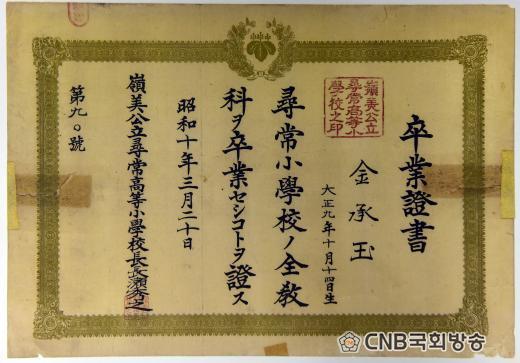 卒業證書
金承玉
大正九年十月十四日生
尋常小學校ノ全教
科ヲ卒業セシコトヲ證ス
昭和十年三月二十日
嶺美公立尋常高等小學校長長瀬
第九〇號
嶺美公立
尋常高等小
學校之印
CNB국회방송